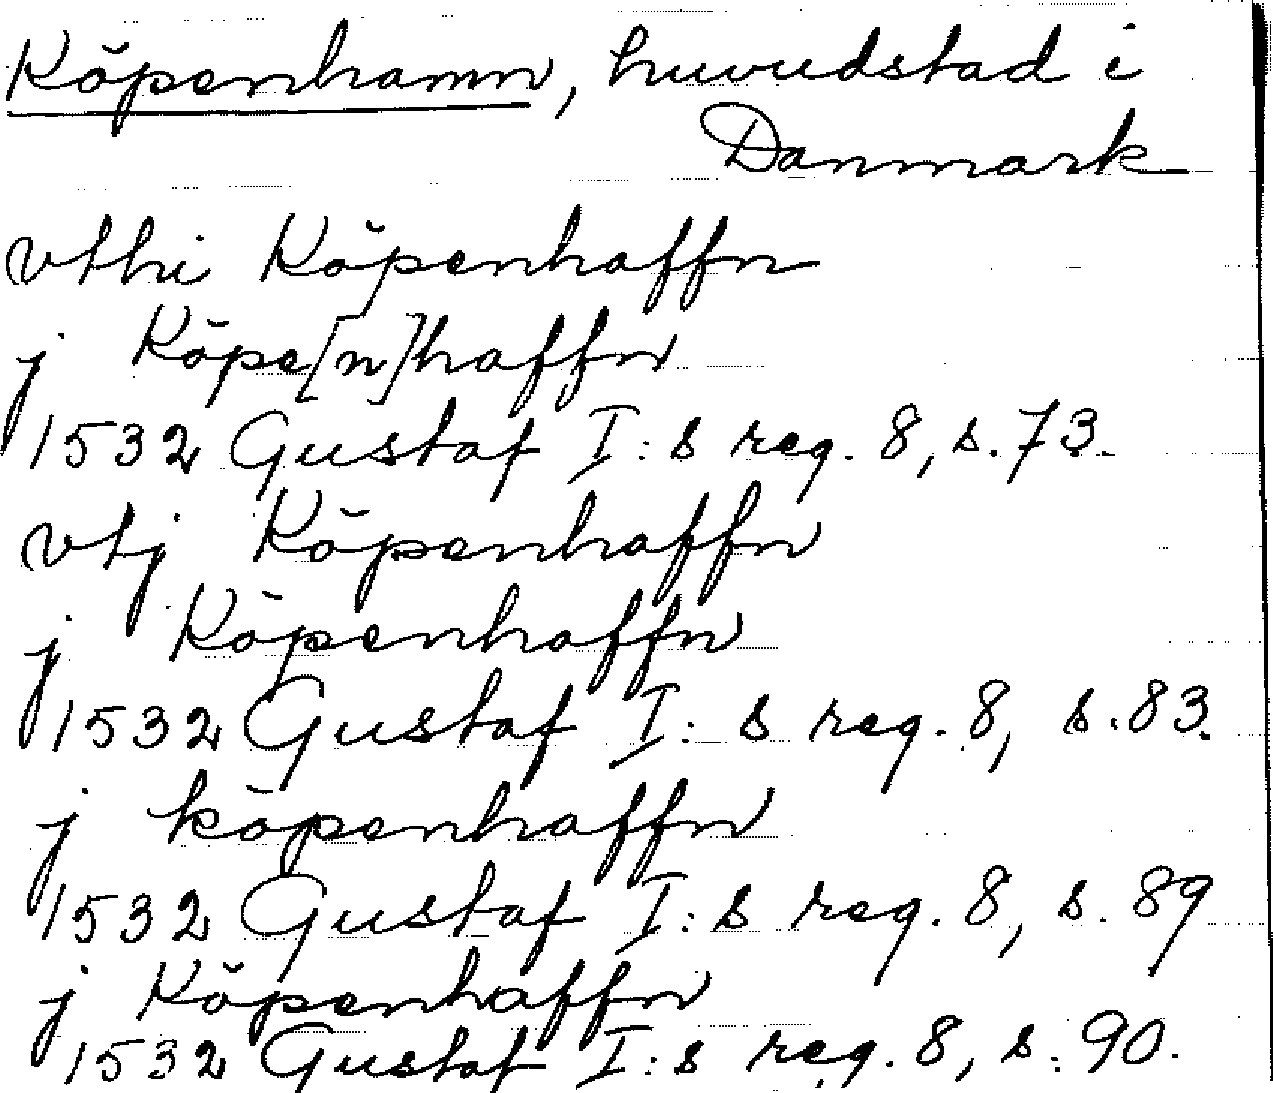 Köpenhamn, huvudstad i
Danmark
vthi Köpenhaffn
j Köpe[n]haffn
1532 Gustaf I:s reg. 8, s. 73.
vtj Köpenhaffn
j Köpenhaffn
1532 Gustaf I:s reg. 8, s. 83.
j köpenhaffn
1532 Gustaf I:s reg. 8, s. 89
j Köpenhaffn
1532 Gustaf I:s reg. 8, s. 90.